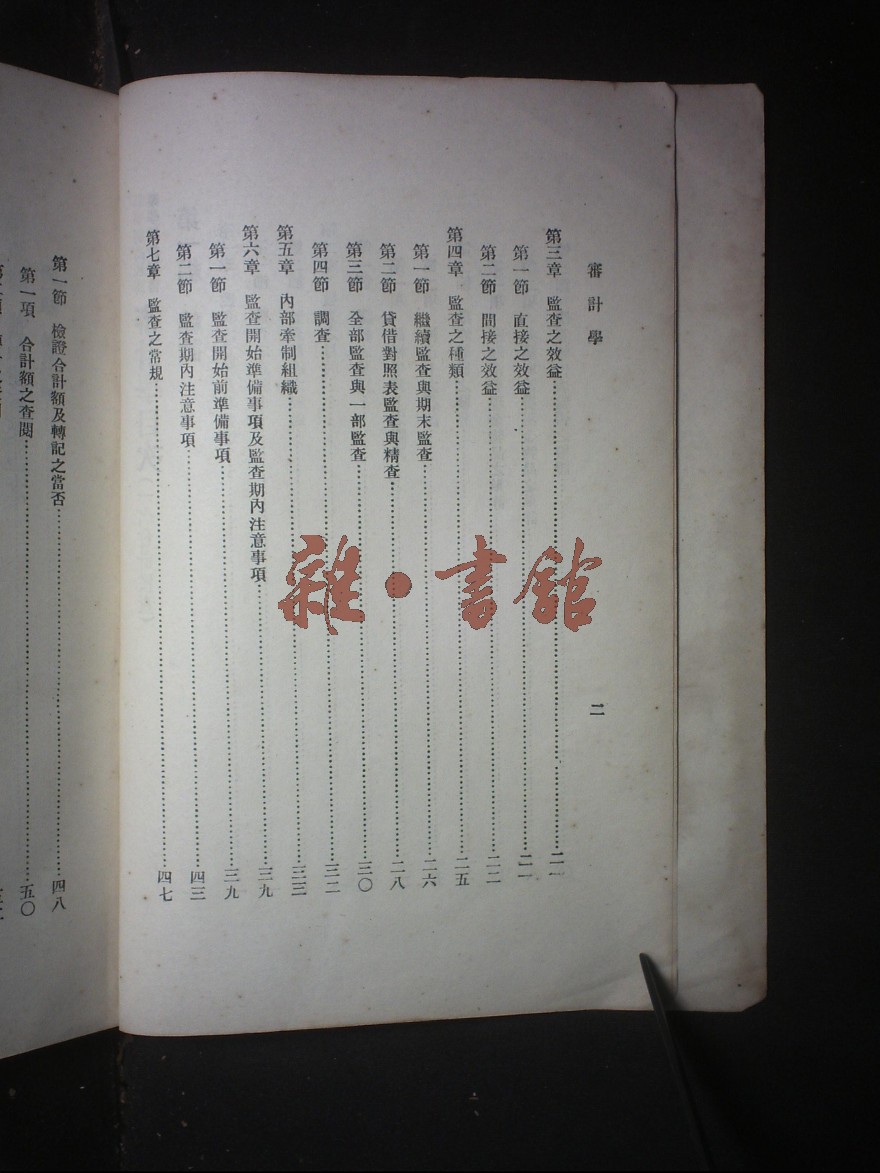 審計學
二
第三章 監查之效益……二一
第一節 直接之效益……二一
第二節 間接之效益……二二
第四章 監查之種類……二五
第一節 繼續監查與期末監查……二六
第二節 貸借對照表監查與精查……二八
第三節 全部監查與一部監查……三〇
第四節 調查……三二
第五章 內部牽制組織……三三
第六章 監查開始準備事項及監查期內注意事項……三九
第一節 監查開始前準備事項……三九
第二節 監查期內注意事項……四三
第七章 監查之常規……四七
第一節 檢證合計額及轉記之當否……四八
第一項 合計額之查閱……五〇
雜·書館